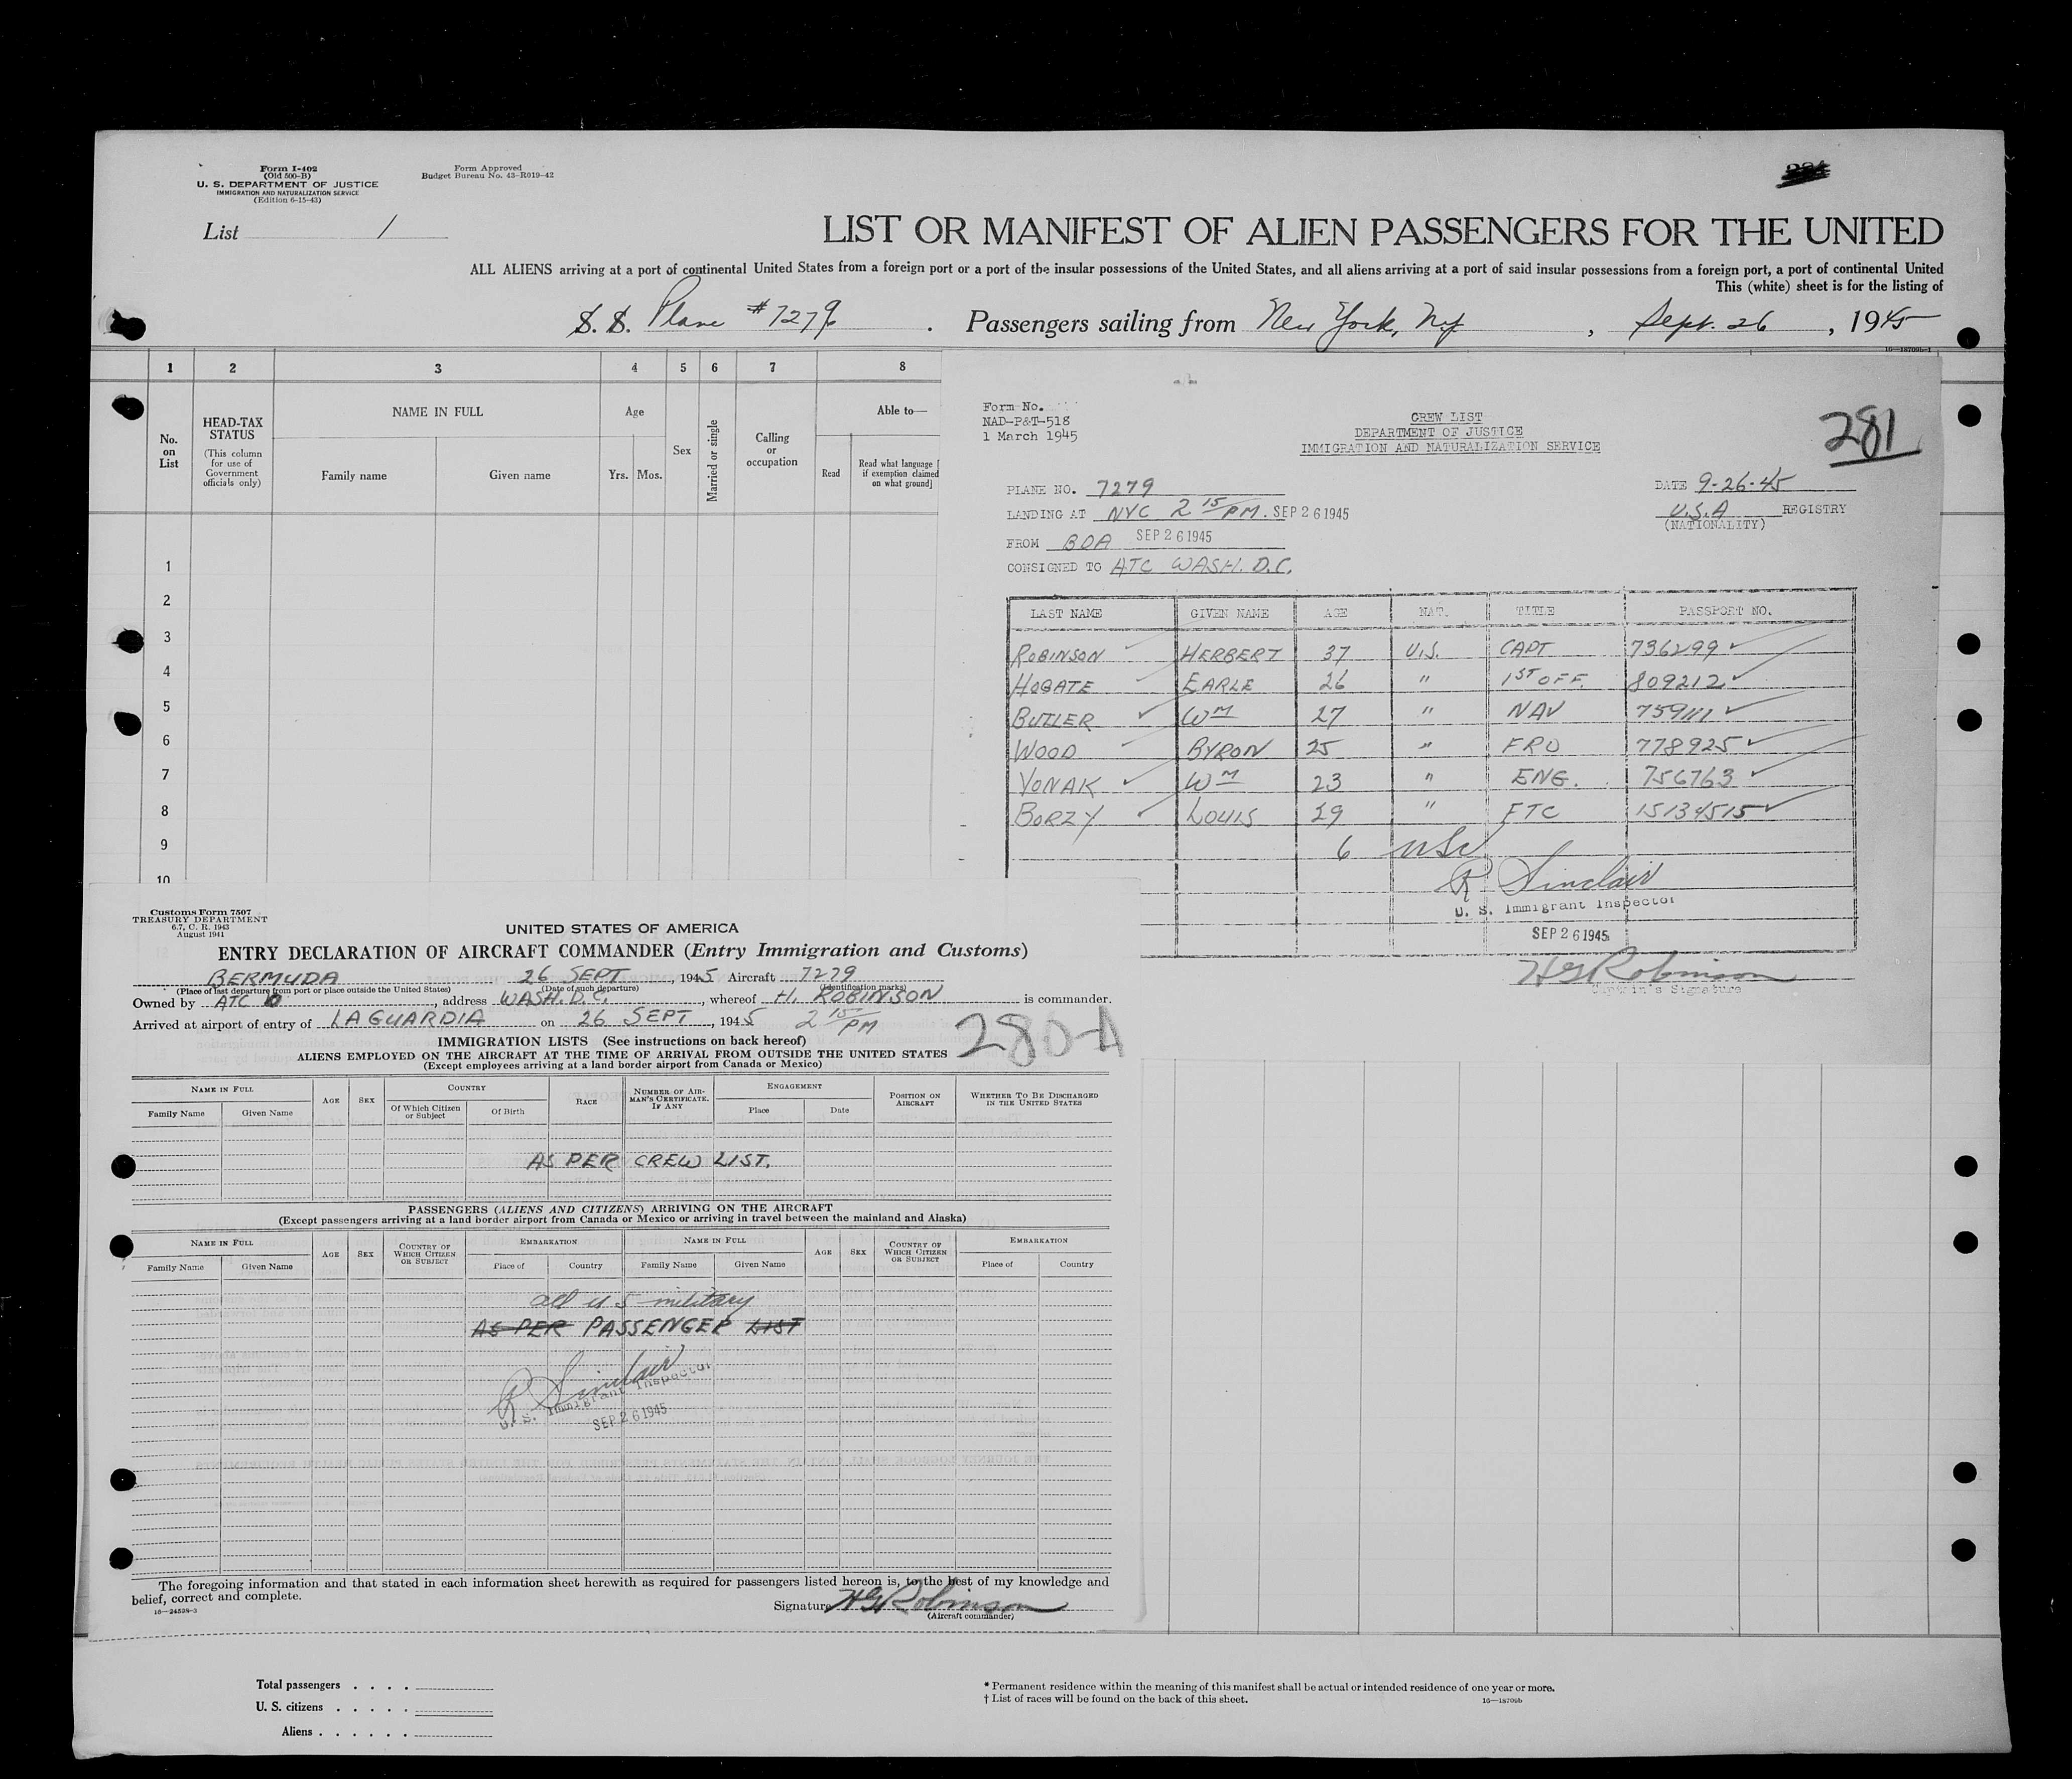 Form I-402
(Old 500-B)
U. S. DEPARTMENT OF JUSTICE
IMMIGRATION AND NATURALIZATION SERVICE
(Edition 6-15-43)
Form Approved
Budget Bureau No. 43-R019-42
List 1
LIST OR MANIFEST OF ALIEN PASSENGERS FOR THE UNITED
ALL ALIENS arriving at a port of continental United States from a foreign port or a port of the insular possessions of the United States, and all aliens arriving at a port of said insular possessions from a foreign port, a port of continental United
This (white) sheet is for the listing of
S. S. Plane #7279 . Passengers sailing from New York, Ny , Sept. 26 , 1945
16—18709b-1
1 2 3 4 5 6 7 8
No. on List
HEAD-TAX STATUS
(This column for use of Government officials only)
NAME IN FULL
Family name Given name
Age
Yrs. Mos.
Sex
Married or single
Calling or occupation
Able to—
Read
Read what language [
if exemption claimed
on what ground]
1
2
3
4
5
6
7
8
9
10
Form No.
NAD-P&T-518
1 March 1945
CREW LIST
DEPARTMENT OF JUSTICE
IMMIGRATION AND NATURALIZATION SERVICE
281
PLANE NO. 7279
DATE 9-26-45
LANDING AT NYC 2 15/PM. SEP 26 1945
U.S.A REGISTRY
(NATIONALITY)
FROM BDA SEP 26 1945
CONSIGNED TO ATC WASH. D.C.
LAST NAME GIVEN NAME AGE NAT. TITLE PASSPORT NO.
ROBINSON HERBERT 37 U.S. CAPT 736299
HOGATE EARLE 26 " 1ST OFF. 809212
BUTLER WM 27 " NAV 759111
WOOD BYRON 25 " FRO 778925
VONAK WM 23 " ENG. 756763
BORZY LOUIS 29 " FTC 15134515
6 USC
R Sinclair
U. S. Immigrant Inspector
SEP 26 1945
HG Robinson
Captain's Signature
Customs Form 7507
TREASURY DEPARTMENT
6.7, C. R. 1943
August 1941
UNITED STATES OF AMERICA
ENTRY DECLARATION OF AIRCRAFT COMMANDER (Entry Immigration and Customs)
BERMUDA 26 SEPT , 1945 Aircraft 7279
(Place of last departure from port or place outside the United States) (Date of such departure) (Identification marks)
Owned by ATC , address WASH. D.C. , whereof H. ROBINSON is commander.
Arrived at airport of entry of LAGUARDIA on 26 SEPT , 1945 2 15/PM
280-A
IMMIGRATION LISTS (See instructions on back hereof)
ALIENS EMPLOYED ON THE AIRCRAFT AT THE TIME OF ARRIVAL FROM OUTSIDE THE UNITED STATES
(Except employees arriving at a land border airport from Canada or Mexico)
NAME IN FULL
Family Name Given Name
AGE SEX
COUNTRY
Of Which Citizen or Subject Of Birth
RACE
NUMBER OF AIRMAN'S CERTIFICATE, IF ANY
ENGAGEMENT
Place Date
POSITION ON AIRCRAFT
WHETHER TO BE DISCHARGED IN THE UNITED STATES
AS PER CREW LIST.
PASSENGERS (ALIENS AND CITIZENS) ARRIVING ON THE AIRCRAFT
(Except passengers arriving at a land border airport from Canada or Mexico or arriving in travel between the mainland and Alaska)
NAME IN FULL AGE SEX COUNTRY OF WHICH CITIZEN OR SUBJECT EMBARKATION NAME IN FULL AGE SEX COUNTRY OF WHICH CITIZEN OR SUBJECT EMBARKATION
Family Name Given Name Place of Country Family Name Given Name Place of Country
all U S military
AS PER PASSENGER LIST
R Sinclair
U. S. Immigrant Inspector
SEP 26 1945
The foregoing information and that stated in each information sheet herewith as required for passengers listed hereon is, to the best of my knowledge and
belief, correct and complete.
16—24528-3
Signature HG Robinson
(Aircraft commander)
Total passengers . . . .
U. S. citizens . . . . .
Aliens . . . . . .
* Permanent residence within the meaning of this manifest shall be actual or intended residence of one year or more.
† List of races will be found on the back of this sheet.
16—18709b